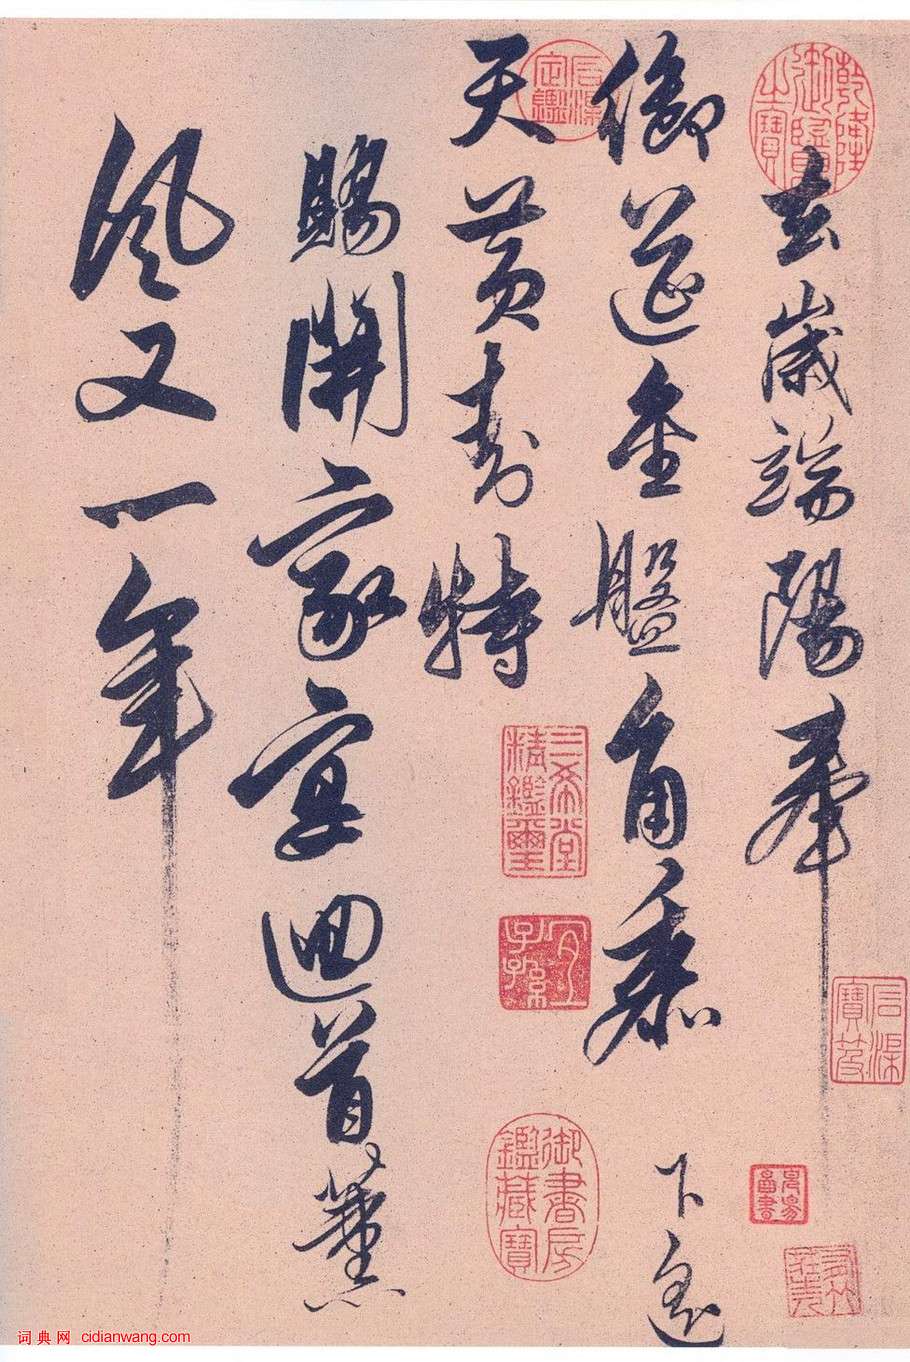 去歲端陽奉
御筵金盤角黍下遙
天黃封特
賜開家宴迴首薰
風又一年
乾隆御覽之寶
石渠定鑑
三希堂精鑑璽
宜子孫
御書房鑑藏寶
石渠寶笈
词典网 cidianwang.com